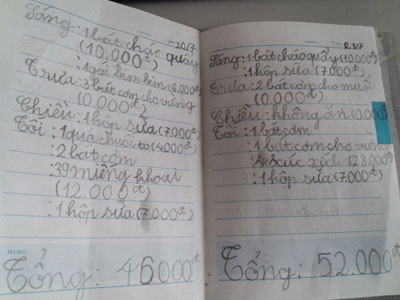 20/7
Sáng: 1 bát cháo quẩy
(10,000đ)
: 1 gói bim bim (5.000đ)
Trưa: 3 bát cơm cho vừng
(0.000đ)
Chiều: 1 hộp sữa (7.000đ)
Tối: 1 quả chuối to (4000đ)
: 2 bát cơm
: 39 miếng khoai
(12.000đ)
: 1 hộp sữa (7.000đ)
MEMO
Tổng: 46000đ
21/7
Sáng: 1 bát cháo quẩy (10,000đ)
: 1 hộp sữa (7.000đ)
Trưa: 2 bát cơm cho muối
(0.000đ)
Chiều: không ăn (0.000đ)
Tối: 1 bát cơm
: 1 bát cơm cho
: 4 xúc xích (28.000đ)
: 1 hộp sữa (7.000đ)
Tổng: 52.000đ